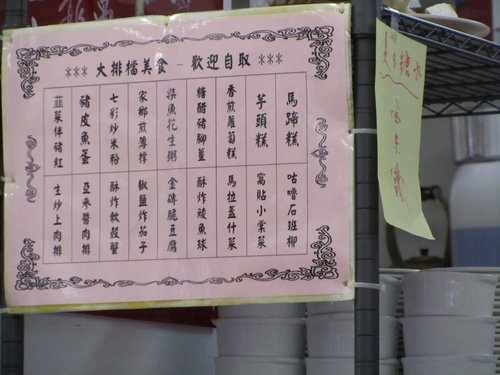 *** 大排檔美食 – 歡迎自取 ***
馬蹄糕
芋頭糕
香煎蘿蔔糕
豬腳薑
柴魚花生粥
家鄉煎薄撐
七彩炒米粉
豬皮魚蛋
韮菜伴豬紅
咕嚕石班柳
窩貼小棠菜
馬拉盞什菜
酥炸鯪魚球
金磚脆豆腐
椒鹽炸茄子
酥炸軟殼蟹
生炒上肉排
是日糖水